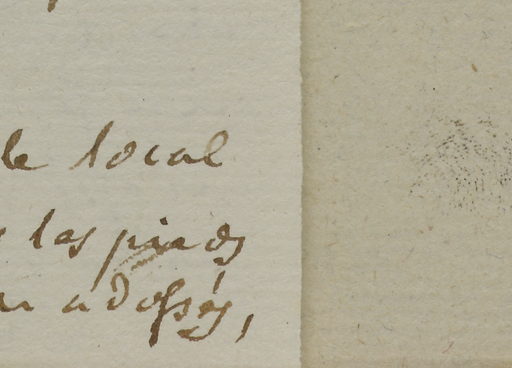 le local
las pieds
adossés,